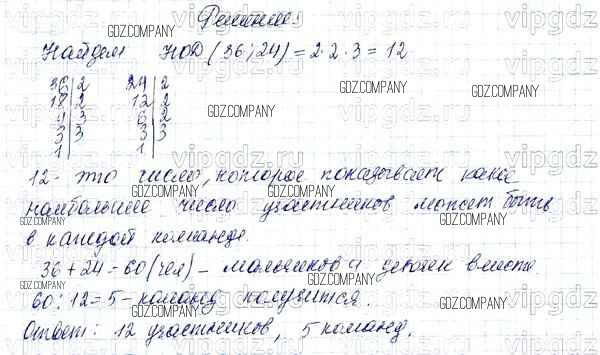 Решение:
Найдем НОД (36; 24) = 2·2·3 = 12
36|2 24|2
18|2 12|2
9|3 6|2
3|3 3|3
1| 1|
12 - это число, которое показывает какое
наибольшее число участников может быть
в каждой команде.
36 + 24 = 60 (чел) - мальчиков и девочек вместе.
60 : 12 = 5 - команд получится.
Ответ: 12 участников, 5 команд.